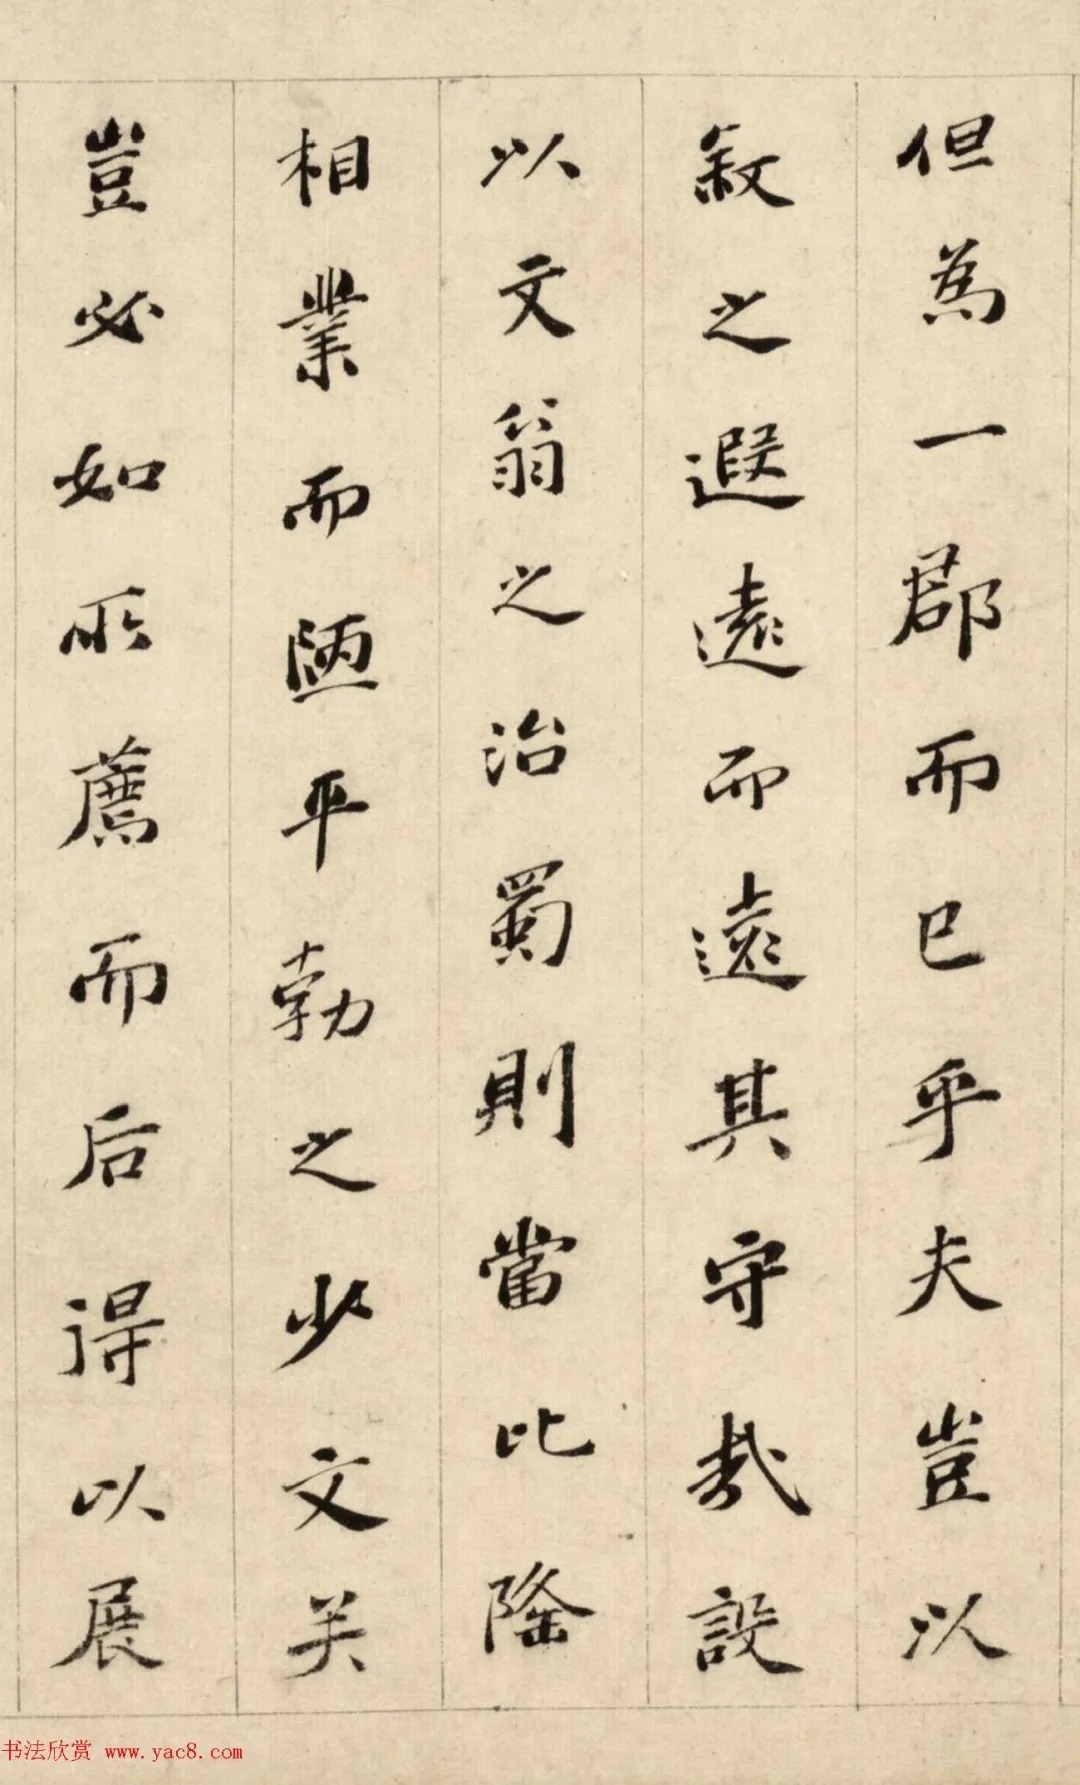 但為一郡而已乎夫豈以
敘之遐遠而遠其守哉設
以文翁之治蜀則當比隆
相業而陋平勃之少文矣
豈必如所薦而后得以展
书法欣赏 www.yac8.com